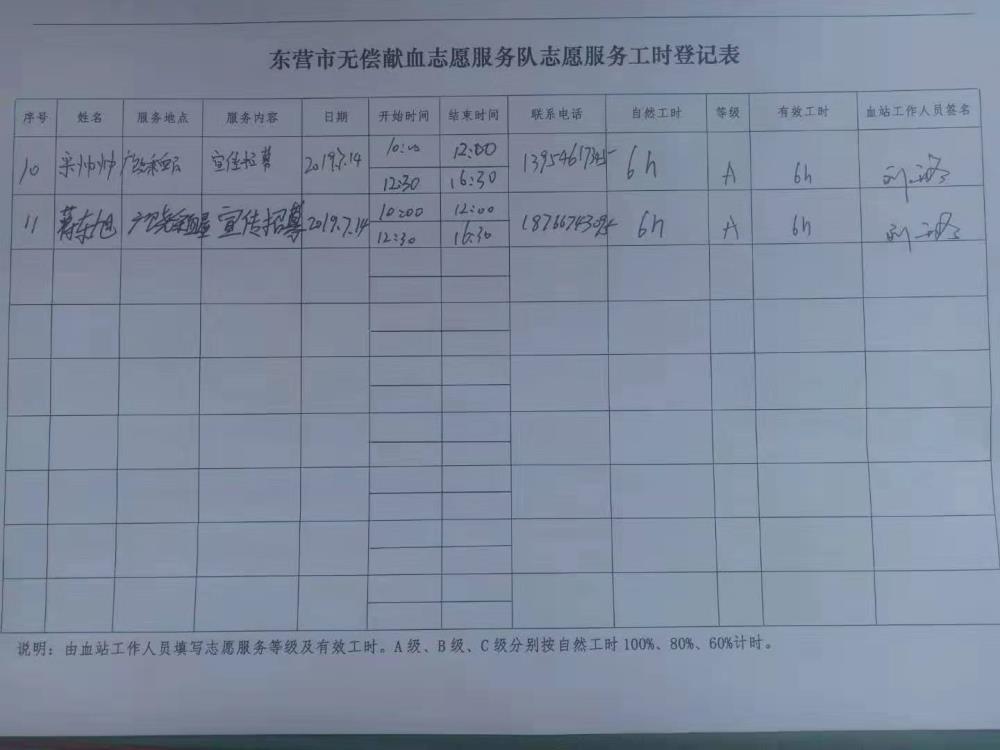 东营市无偿献血志愿服务队志愿服务工时登记表
序号 姓名 服务地点 服务内容 日期 开始时间 结束时间 联系电话 自然工时 等级 有效工时 血站工作人员签名
10 帅帅 宣传招募 2019.7.14 10:00 12:00 13954617345 6h A 6h 刘
12:30 16:30
11 东旭 宣传招募 2019.7.14 10:00 12:00 6h A 6h 刘
12:30 16:30
说明：由血站工作人员填写志愿服务等级及有效工时。A 级、B 级、C 级分别按自然工时 100%、80%、60%计时。